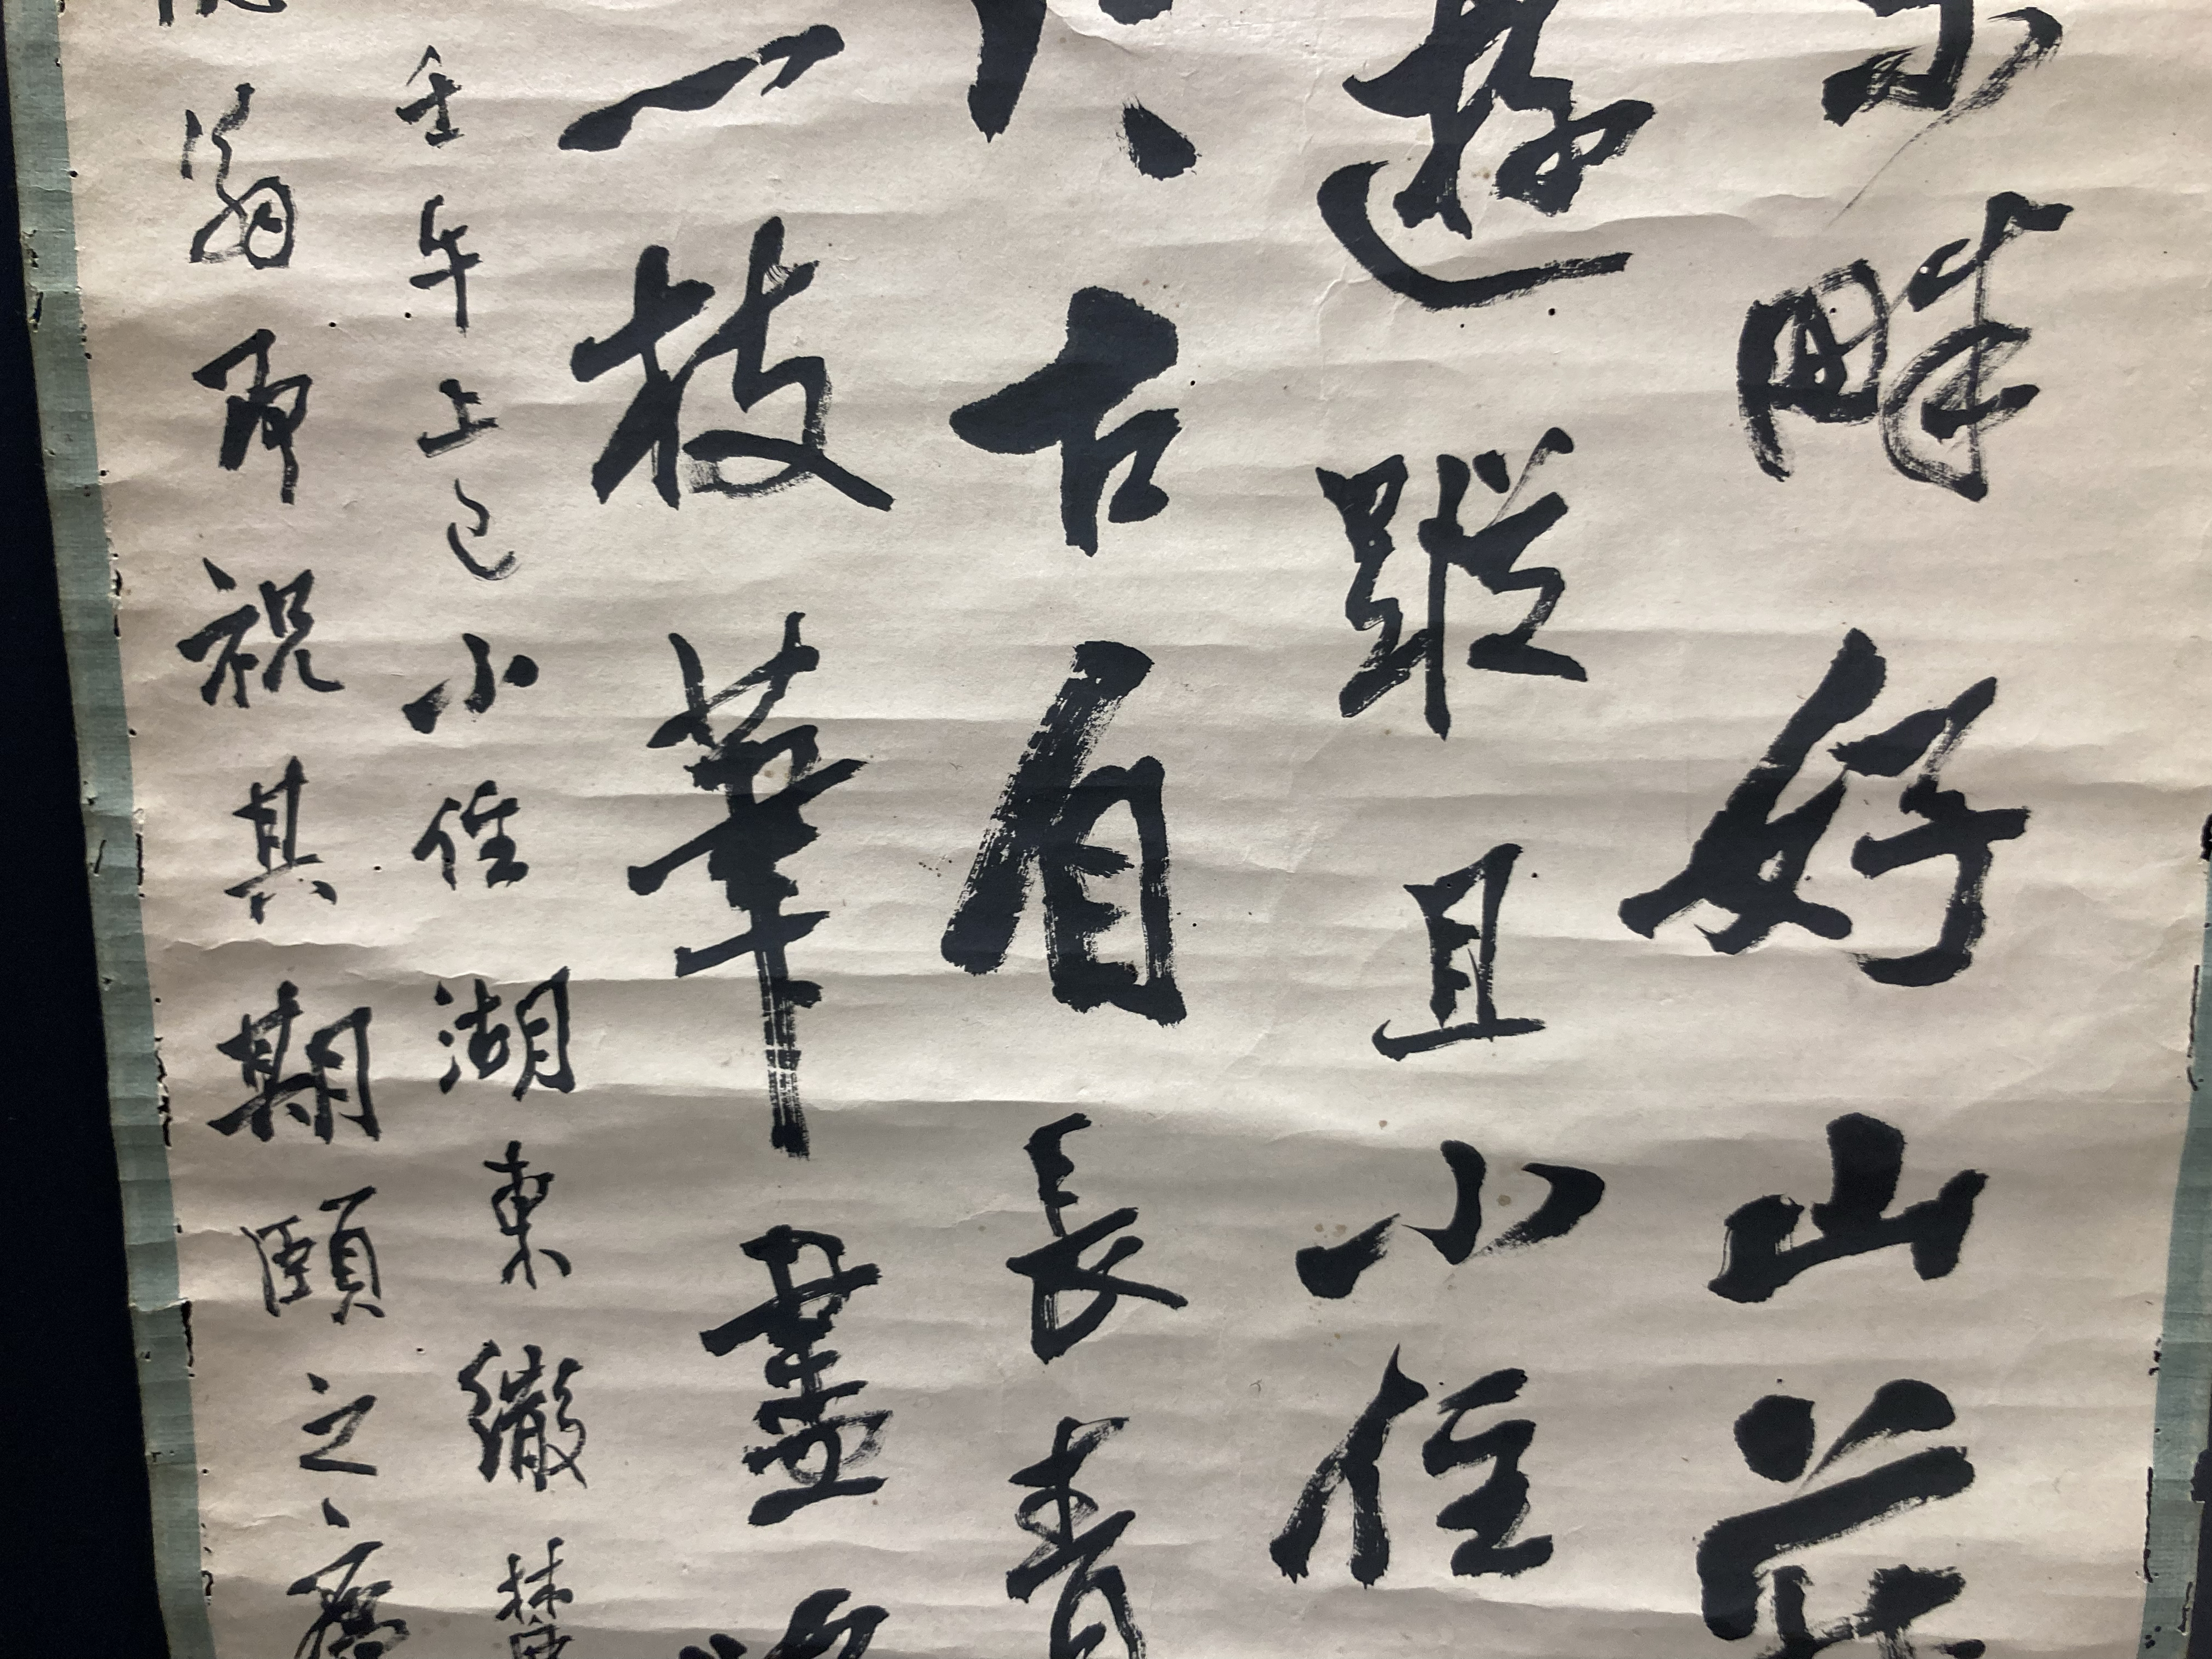 畔好山莊
遊蹤且小住
古眉長青
一枝筆畫
壬午上巳小住湖東繖
翁即祝其期頤之